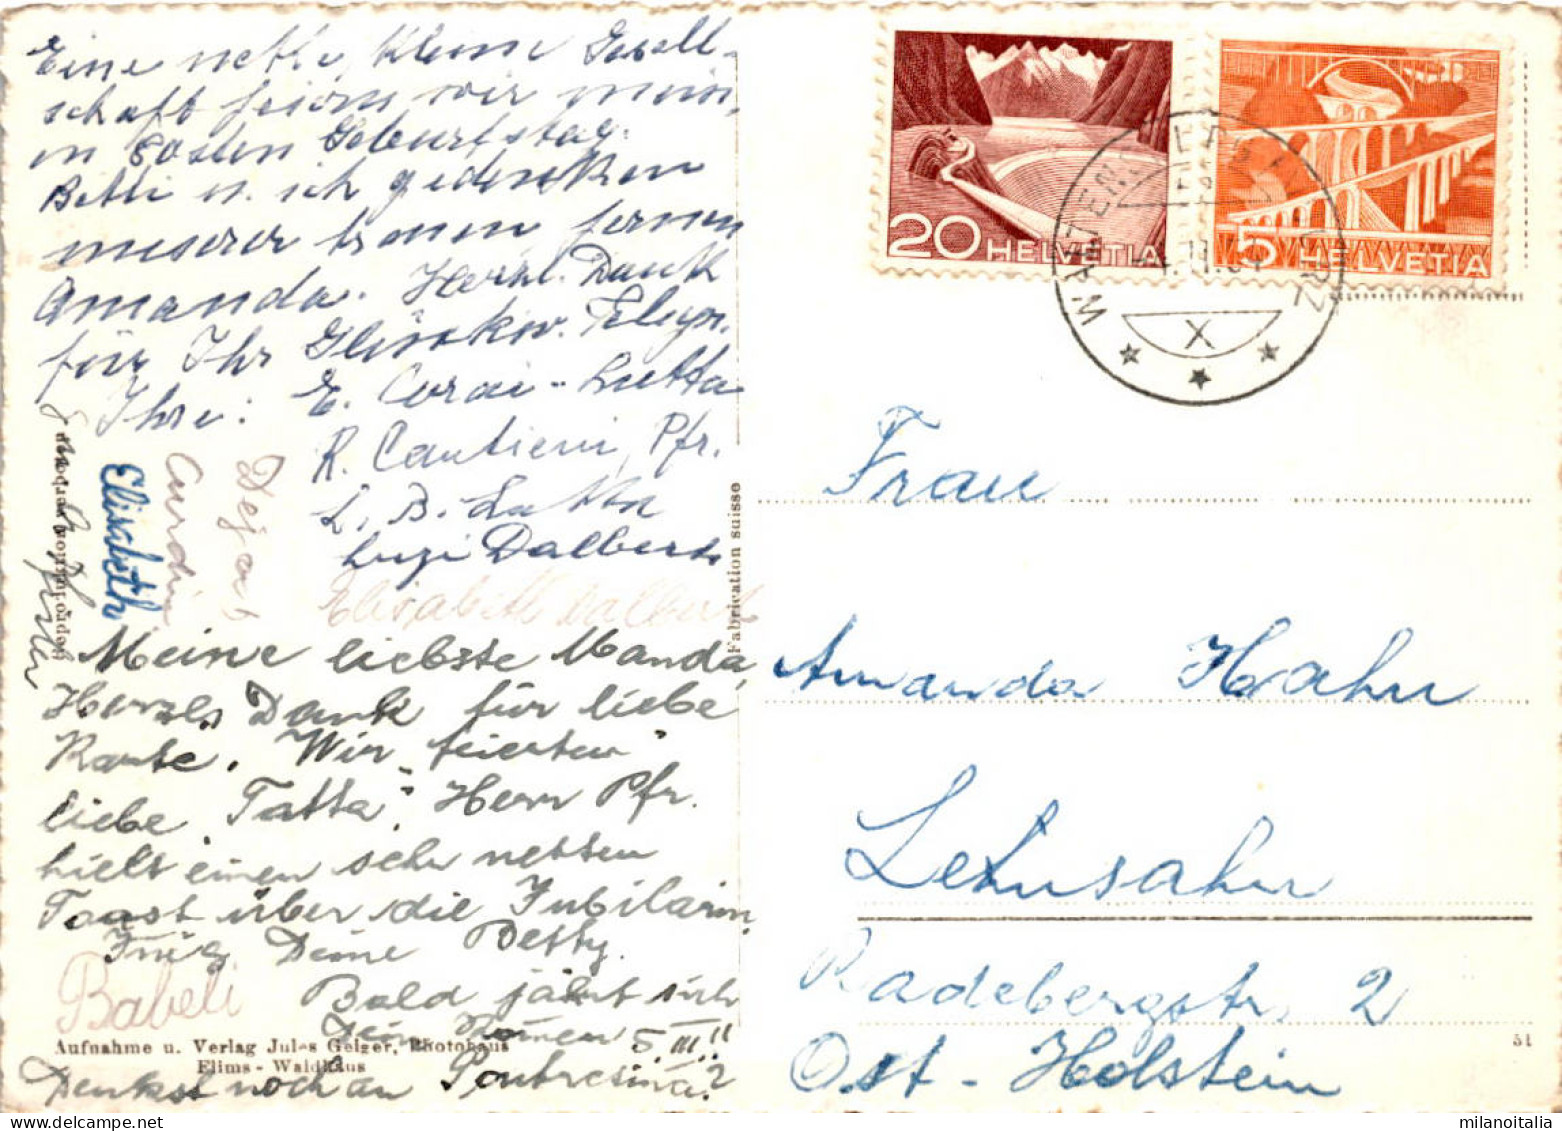 Eine nette, kleine Gesell-
schaft feiern wir meinen
80sten Geburtstag.
Betti u. ich gedenken
unserer treuen fernen
Amanda. Herzl. Dank
für Ihr Glückw. Telegr.
Ihre: E. Corai-Lutta
R. Cantieni, Pfr.
L. B. Lutta
Luzi Dalbert
Elisabeth Dalbert
Elisabeth
Meine liebste Manda,
Herzl. Dank für liebe
Karte. Wir feierten
liebe „Tatta“. Herr Pfr.
hielt einen sehr netten
Toast über die Jubilarin
Innig Deine Betty.
Babeli
Bald jährt sich
Dein Kommen 5. III.!!
Aufnahme u. Verlag Jules Geiger, Photohaus
Flims - Waldhaus
Denkst noch an Pontresina?
Fabrication suisse
20 HELVETIA
5 HELVETIA
X
Frau
Amanda Hahn
Lehnsahn
Radebergstr. 2
Ost-Holstein
51
milanoitalia